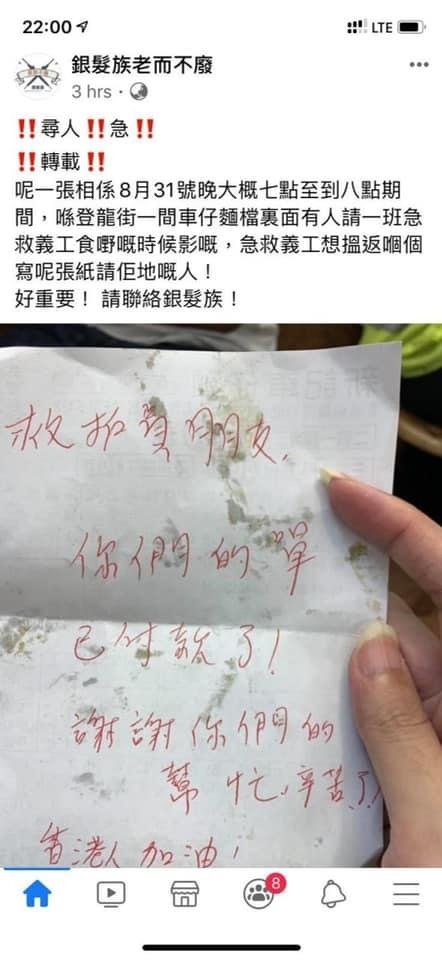 22:00
LTE
銀髮族老而不廢
3 hrs ·
‼️尋人‼️急‼️
‼️轉載‼️
呢一張相係8月31號晚大概七點至到八點期
間，喺登龍街一間車仔麵檔裏面有人請一班急
救義工食嘢嘅時候影嘅，急救義工想搵返嗰個
寫呢張紙請佢地嘅人！
好重要！ 請聯絡銀髮族！
救护員朋友，
你們的單
已付款了！
謝謝你們的
幫忙，辛苦了！
香港人加油！
8